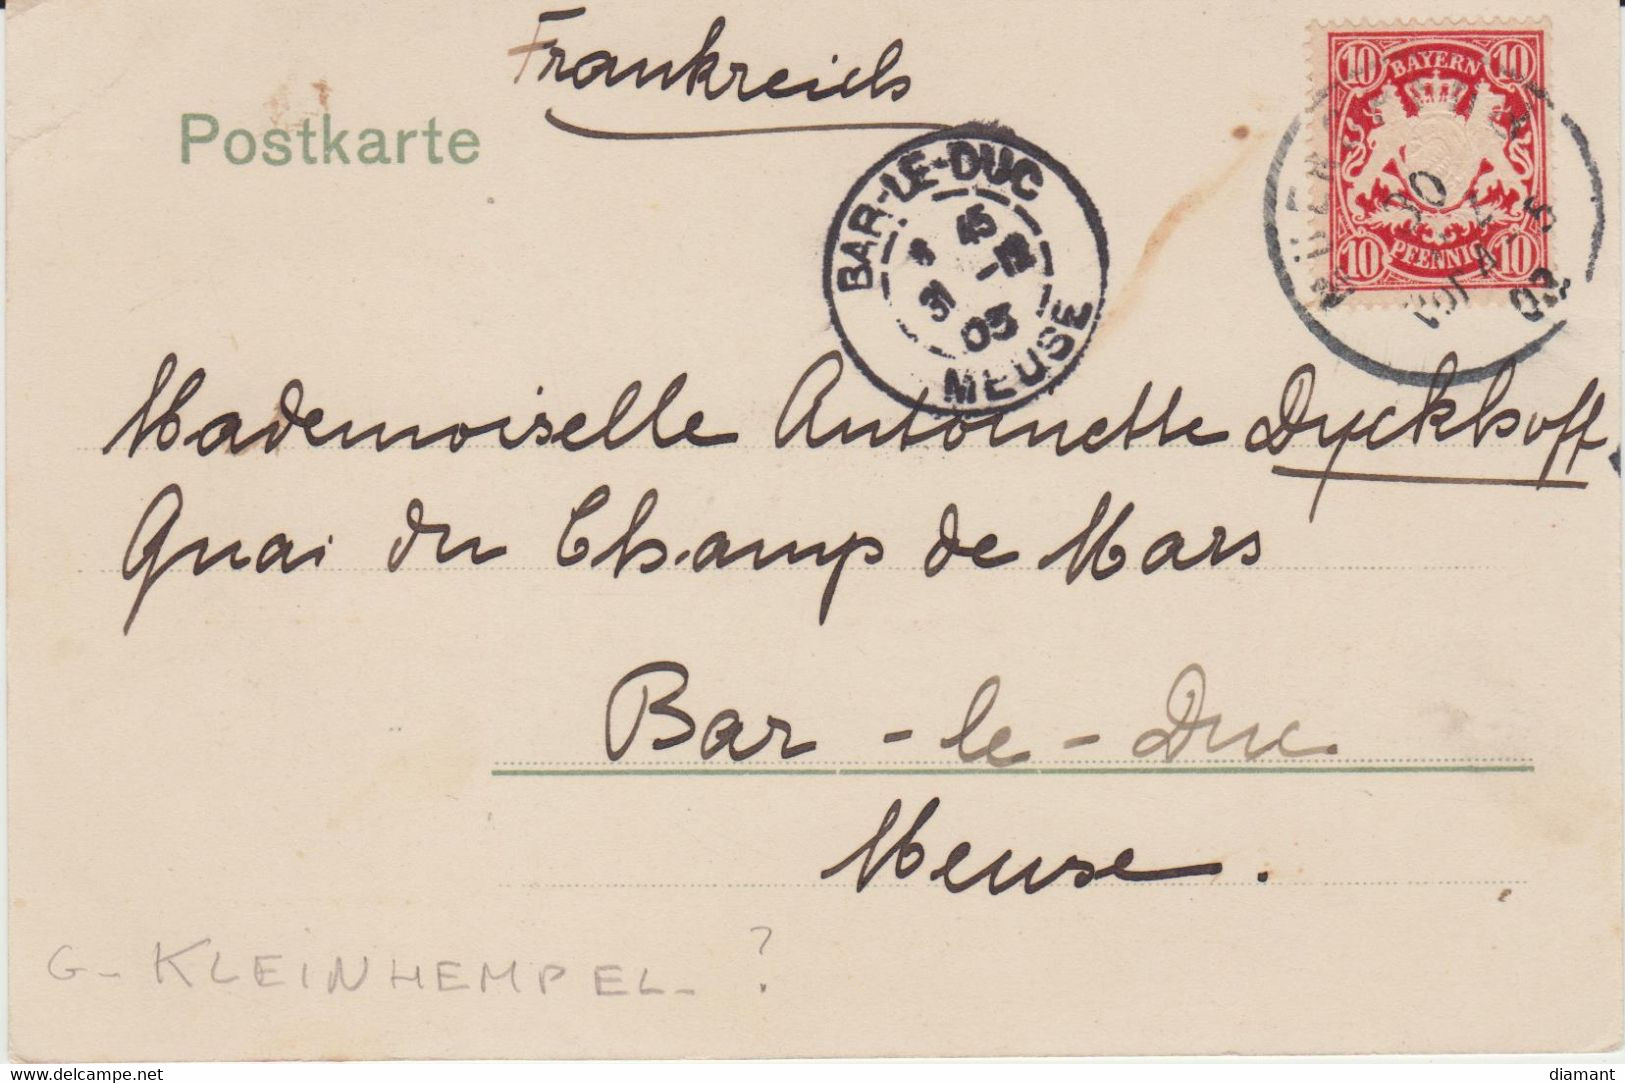 Frankreich
Postkarte
BAYERN
10 10
10 PFENNIG 10
BAR-LE-DUC
45
31 -12
03
MEUSE
Mademoiselle Antoinette Dyckhoff.
Quai du Champ de Mars
Bar-le-Duc.
Meuse.
G- KLEINHEMPEL- ?
www.delcampe.net
diamant